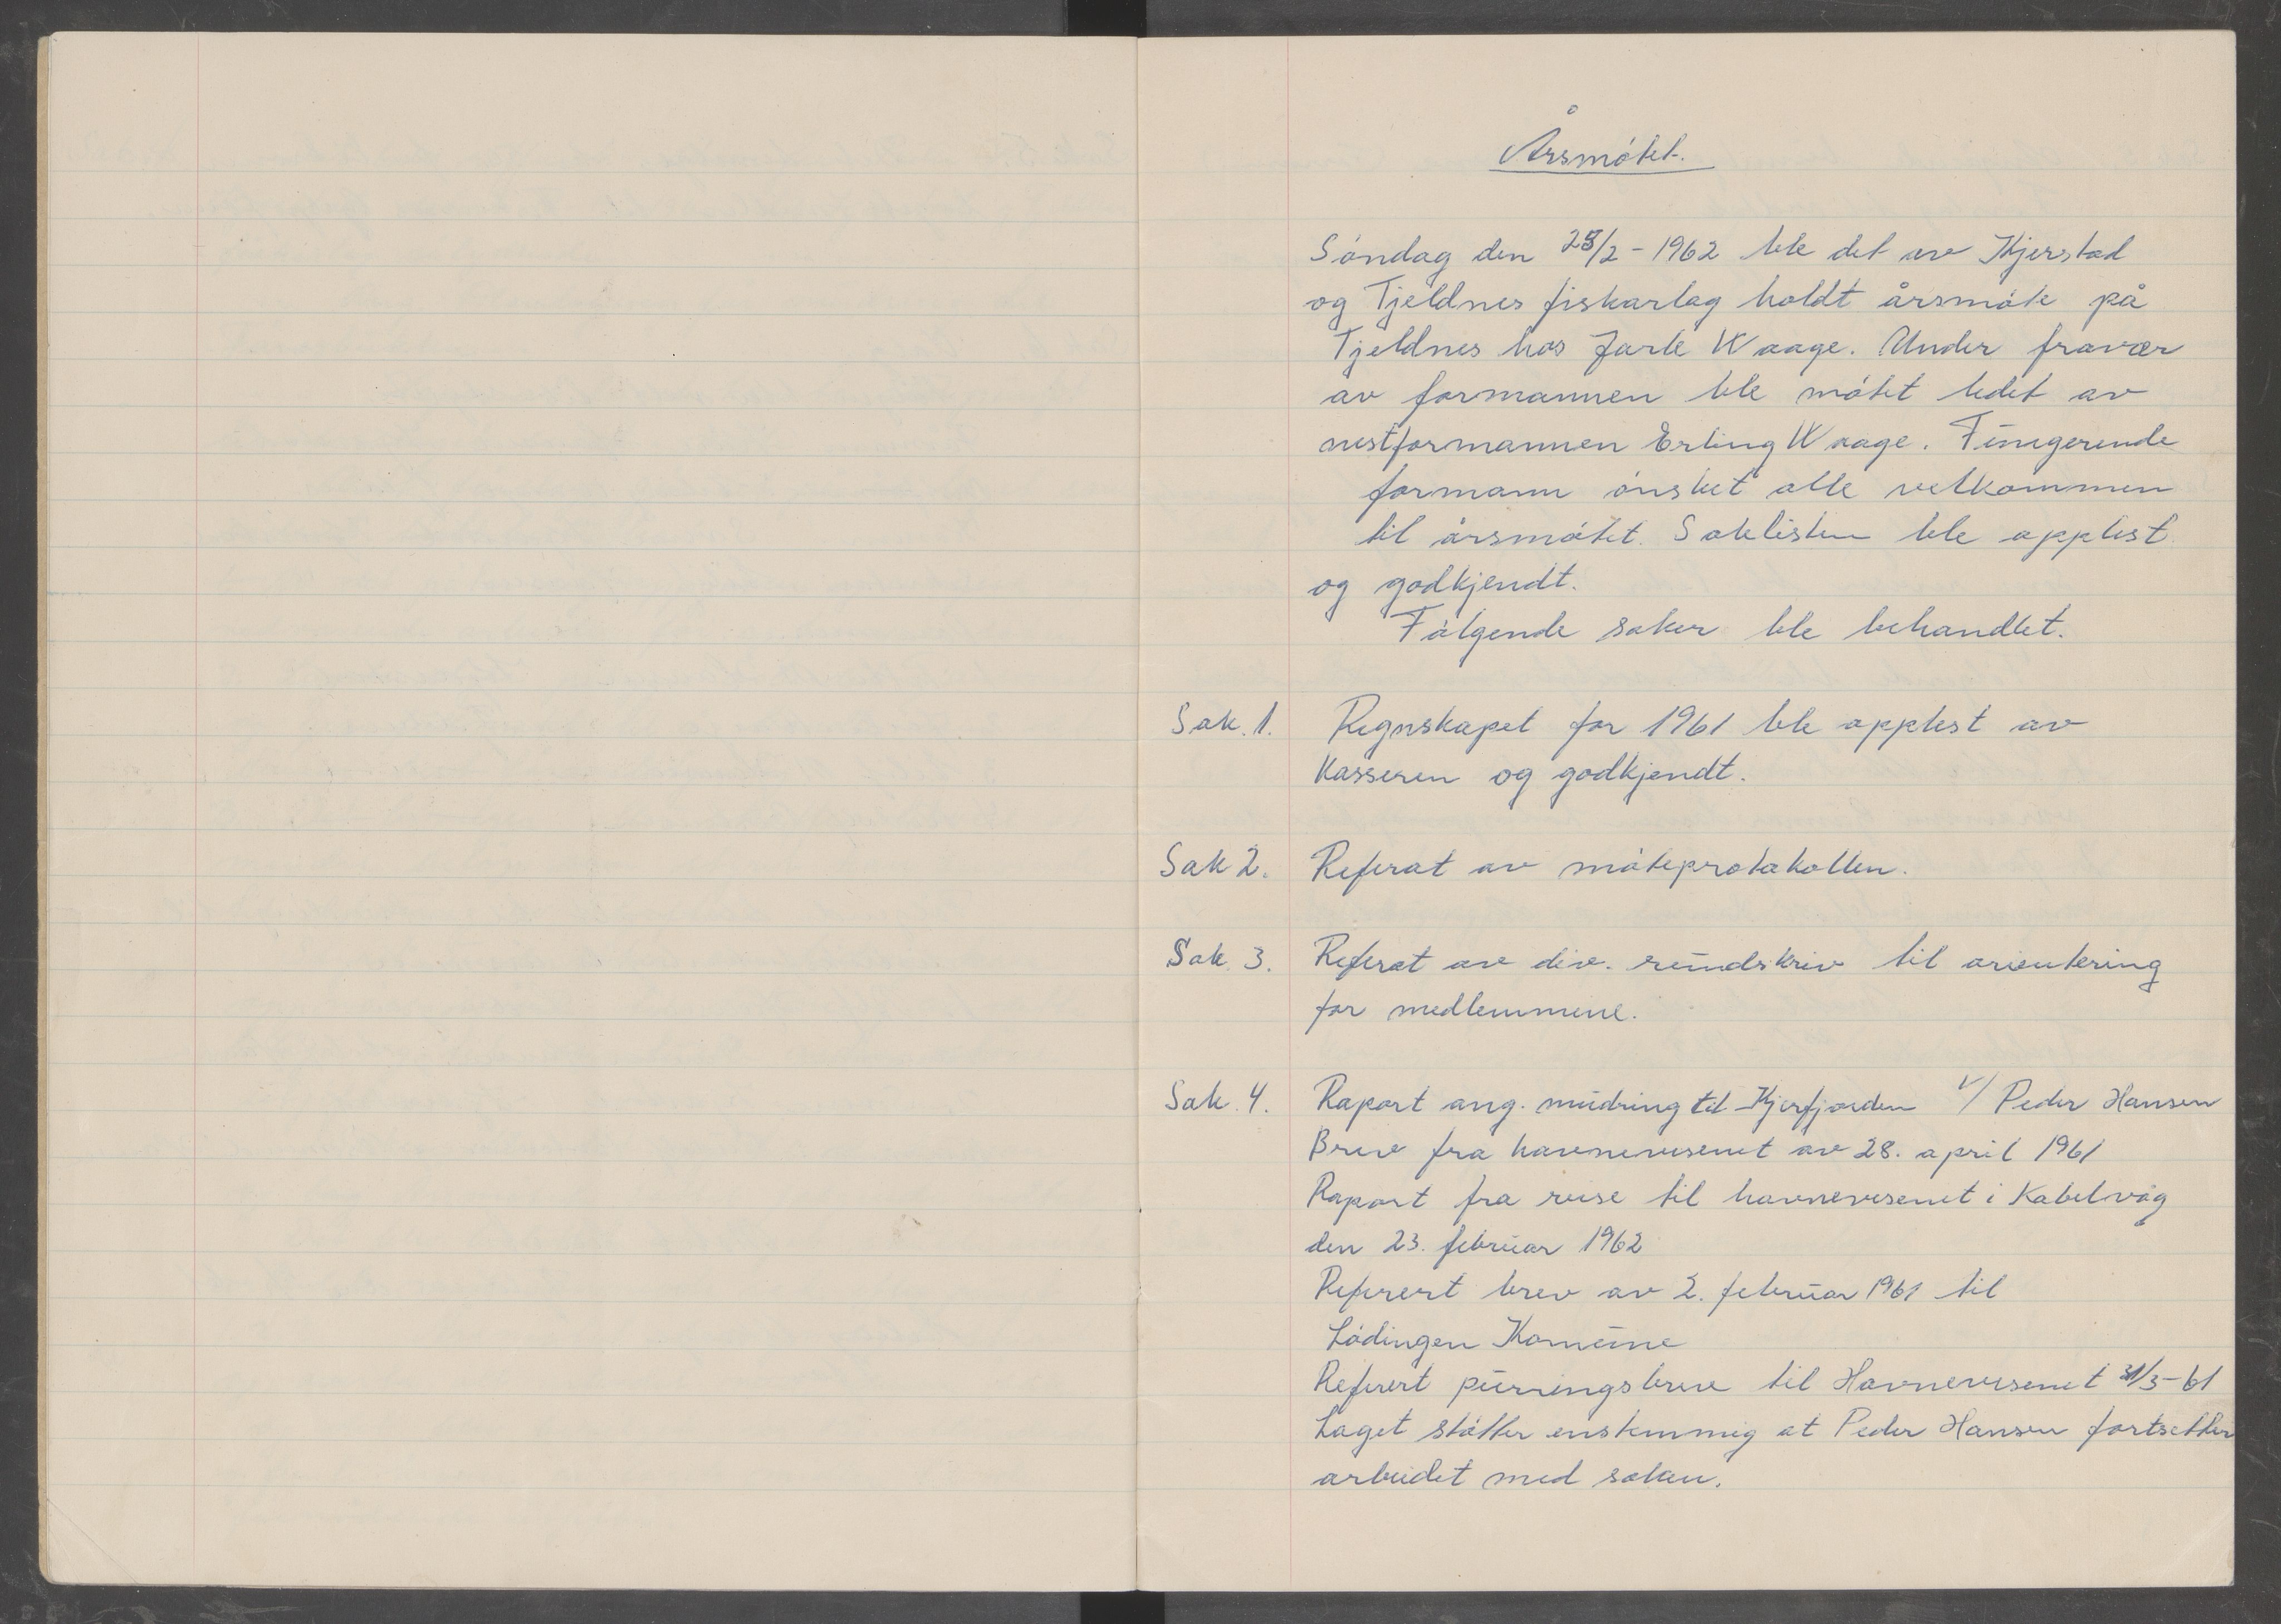 Årsmøtet.
Søndag den 25/2 - 1962 ble det av Kjerstad
og Tjeldnes fiskarlag holdt årsmøte på
Tjeldnes hos Jarle Waage. Under fravær
av formannen ble møtet ledet av
nestformannen Erling Waage. Fungerende
formann ønsket alle velkommen
til årsmøtet. Saklisten ble opplest
og godkjendt.
Følgende saker ble behandlet.
Sak. 1. Regnskapet for 1961 ble opplest av
Kasseren og godkjendt.
Sak 2. Referat av møteprotokollen.
Sak. 3. Referat av div. rundskriv til orientering
for medlemmene.
Sak. 4. Raport ang. mudring til Kjerfjorden v/ Peder Hansen
Brev fra havnevesenet av 28. april 1961
Raport fra reise til havnevesenet i Kabelvåg
den 23. februar 1962
Referert brev av 2. februar 1961 til
Lødingen Komune
Referert purringsbrev til Havnevesenet 31/3-61
Laget støtter enstemmig at Peder Hansen fortsetter
arbeidet med saken.